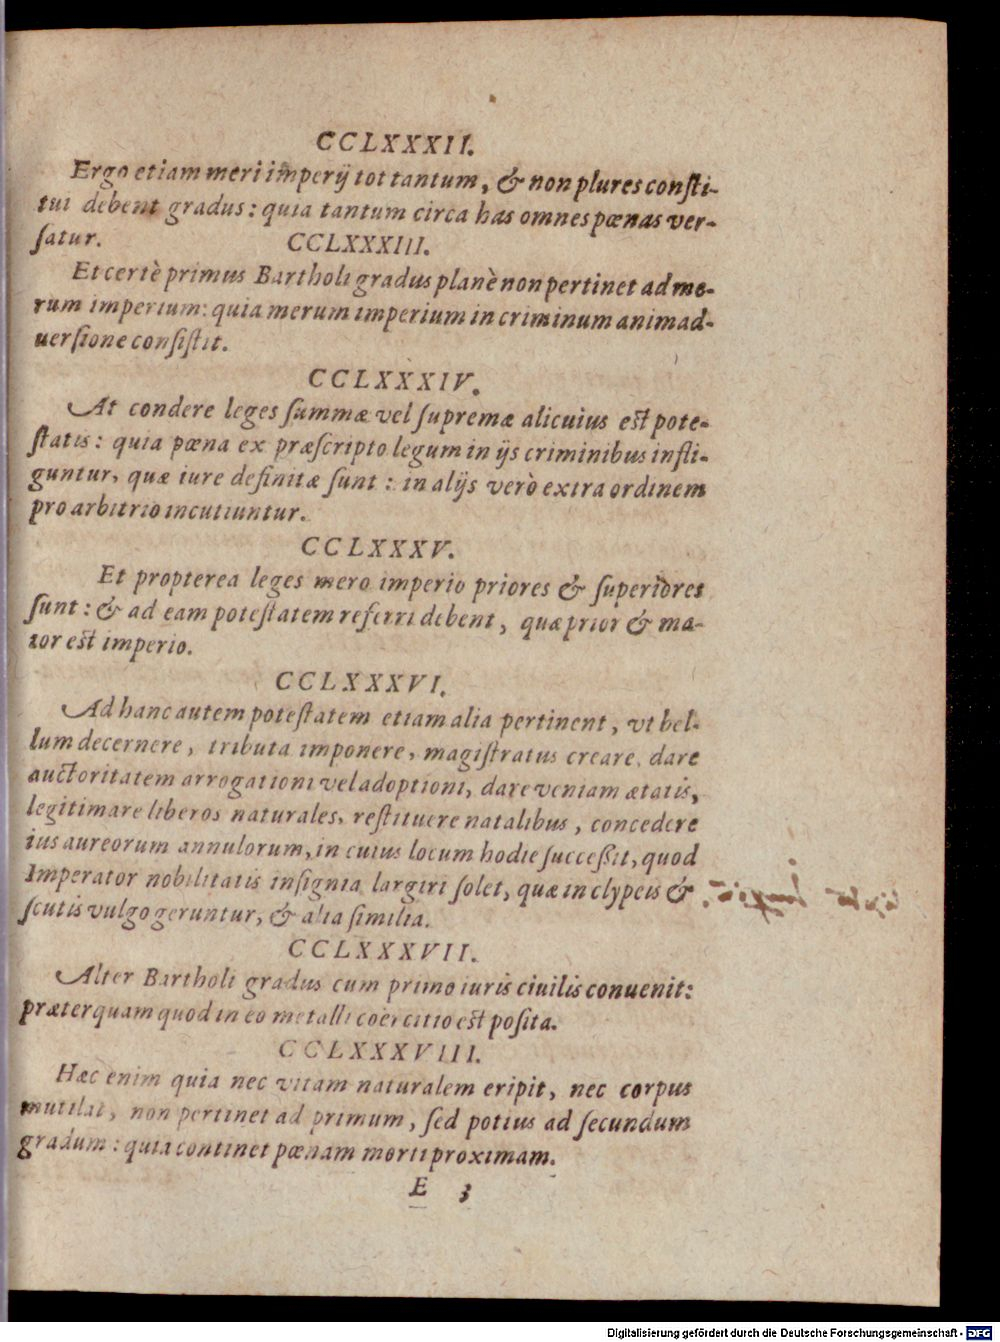 CCLXXXII.
Ergo etiam meri imperij tot tantum, & non plures consti-
tui debent gradus: quia tantum circa has omnes pœnas ver-
satur.
CCLXXXIII.
Et certè primus Bartholi gradus planè non pertinet ad me-
rum imperium: quia merum imperium in criminum animad-
uersione consistit.
CCLXXXIV.
At condere leges summæ vel supremæ alicuius est pote-
statis: quia pœna ex præscripto legum in ijs criminibus infli-
guntur, quæ iure definitæ sunt: in alijs verò extra ordinem
pro arbitrio incutiuntur.
CCLXXXV.
Et propterea leges mero imperio priores & superiores
sunt: & ad eam potestatem referri debent, quæ prior & ma-
ior est imperio.
CCLXXXVI.
Ad hanc autem potestatem etiam alia pertinent, vt bel-
lum decernere, tributa imponere, magistratus creare, dare
auctoritatem arrogationi vel adoptioni, dare veniam ætatis,
legitimare liberos naturales, restituere natalibus, concedere
ius aureorum annulorum, in cuius locum hodie successit, quod
Imperator nobilitatis insignia largiri solet, quæ in clypeis &
scutis vulgo geruntur, & alia similia.
CCLXXXVII.
Alter Bartholi gradus cum primo iuris ciuilis conuenit:
præterquam quod in eo metalli coërcitio est posita.
CCLXXXVIII.
Hæc enim quia nec vitam naturalem eripit, nec corpus
mutilat, non pertinet ad primum, sed potius ad secundum
gradum: quia continet pœnam morti proximam.
E 3
Digitalisierung gefördert durch die Deutsche Forschungsgemeinschaft - DFG